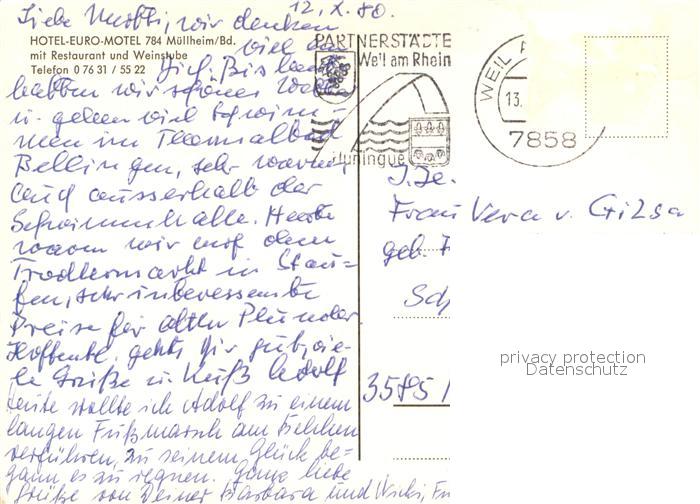 12.X.80.
Liebe Mutti, wir denken
HOTEL-EURO-MOTEL 784 Müllheim/Bd.
viel an
mit Restaurant und Weinstube
Telefon 0 76 31 / 55 22
Dich. Bis
habben wir schönes
u. gehen viel Schwim-
men im Thermalbad
Bellingen, sehr warm,
auch ausserhalb der
Schwimmhalle. Heute
waren wir auf dem
Trödlermarkt in Stau-
fen, sehr interessante
Preise für alten Plunder
Hoffentl. gehts Dir gut, vie-
le Grüße u. Kuß Adolf
Heute wollte ich Adolf zu einem
langen Fußmarsch am Belchen
verführen, zu seinem Glück be-
gann es zu regnen. Ganz liebe
Grüße von Deiner Barbara und
PARTNERSTÄDTE
Weil am Rhein
Huningue
WEIL
13.
7858
Frau Vera v. Gilsa
geb.
Sch
3575
privacy protection
Datenschutz